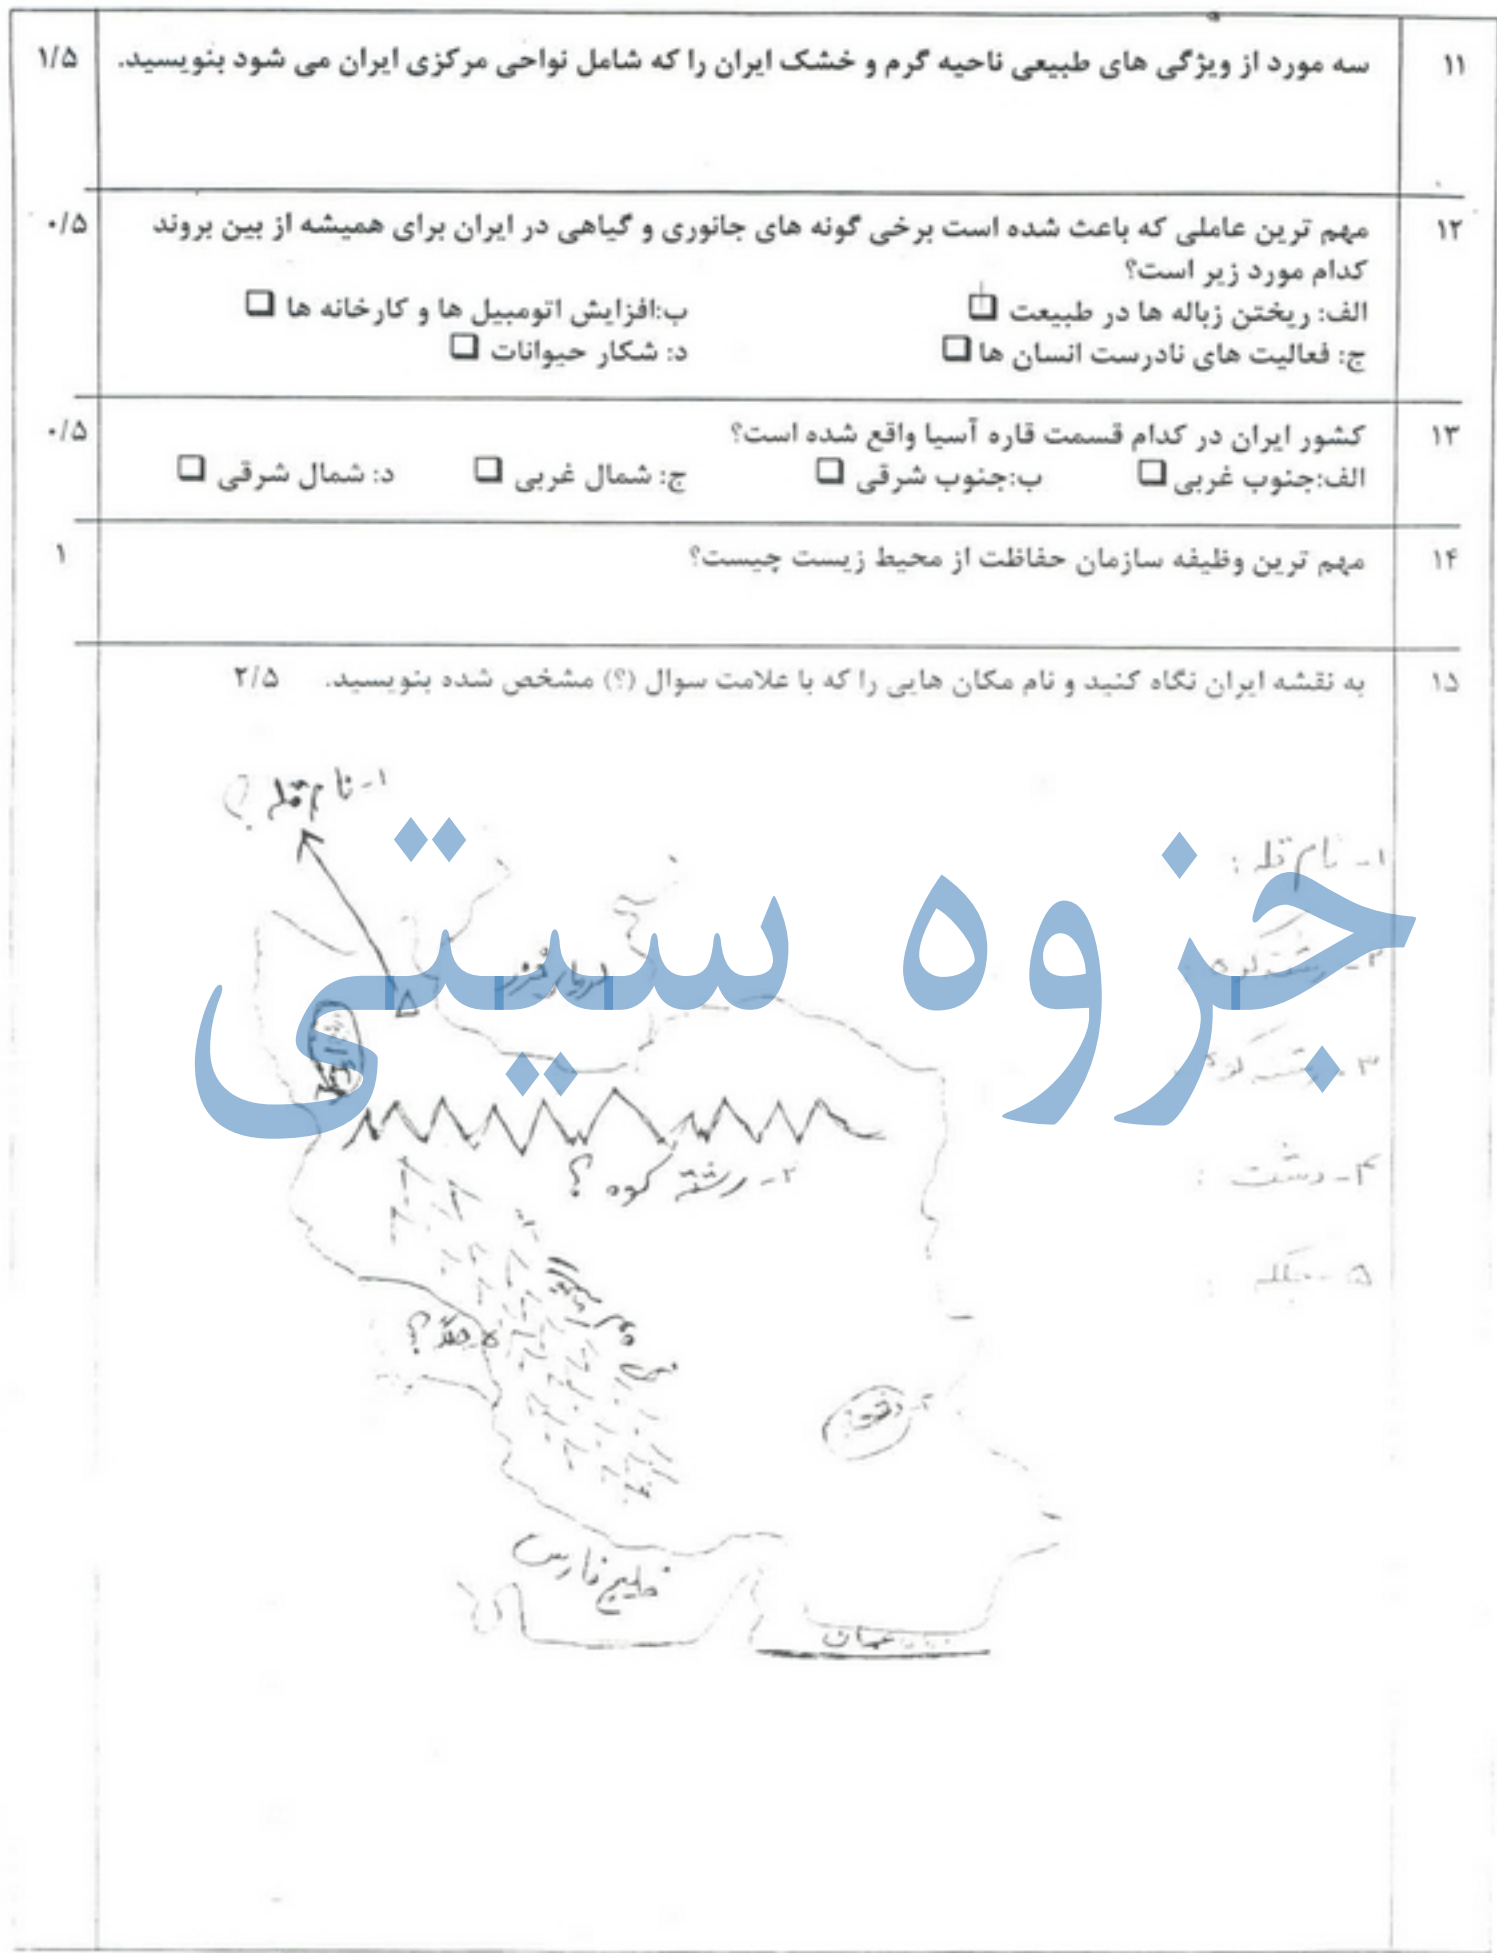 ۱۱ سه مورد از ویژگی های طبیعی ناحیه گرم و خشک ایران را که شامل نواحی مرکزی ایران می شود بنویسید. ۱/۵
۱۲ مهم ترین عاملی که باعث شده است برخی گونه های جانوری و گیاهی در ایران برای همیشه از بین بروند ۰/۵
کدام مورد زیر است؟
الف: ریختن زباله ها در طبیعت ❑ ب:افزایش اتومبیل ها و کارخانه ها ❑
ج: فعالیت های نادرست انسان ها ❑ د: شکار حیوانات ❑
۱۳ کشور ایران در کدام قسمت قاره آسیا واقع شده است؟ ۰/۵
الف:جنوب غربی ❑ ب:جنوب شرقی ❑ ج: شمال غربی ❑ د: شمال شرقی ❑
۱۴ مهم ترین وظیفه سازمان حفاظت از محیط زیست چیست؟ ۱
۱۵ به نقشه ایران نگاه کنید و نام مکان هایی را که با علامت سوال (؟) مشخص شده بنویسید. ۲/۵
۱- نام قله ؟
۱- نام قله :
جزوه سیتی
دریای خزر
۲- رشته کوه
۳- رشته کوه
۲- رشته کوه ؟
۴- دشت :
۵- جلگه :
۵ جلگه ؟
۴- دشت
خلیج فارس
عمان